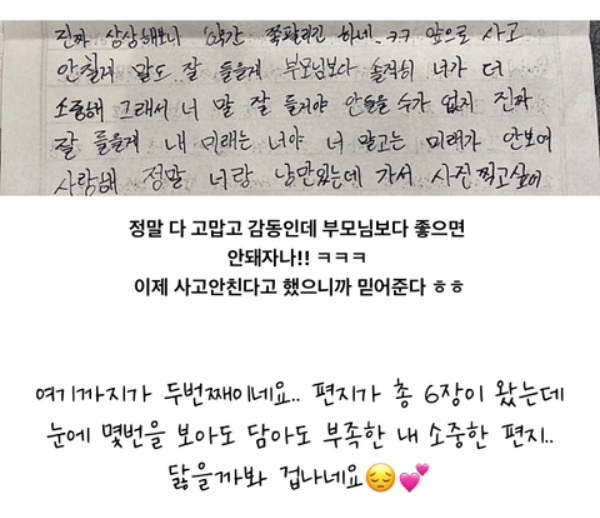 진짜 상상해보니 약간 쪽팔리긴 하네.ㅋㅋ 앞으로 사고
안칠게 말도 잘 들을게 부모님보다 솔직히 너가 더
소중해 그래서 너 말 잘 들어야 안들을 수가 없지 진짜
잘 들을게 내 미래는 너야 너 말고는 미래가 안보여
사랑해 정말 너랑 낭만있는데 가서 사진찍고싶어
정말 다 고맙고 감동인데 부모님보다 좋으면
안돼자나!! ㅋㅋㅋ
이제 사고안친다고 했으니까 믿어준다 ㅎㅎ
여기까지가 두번째이네요.. 편지가 총 6장이 왔는데
눈에 몇번을 보아도 담아도 부족한 내 소중한 편지..
닳을까봐 겁나네요😔💕